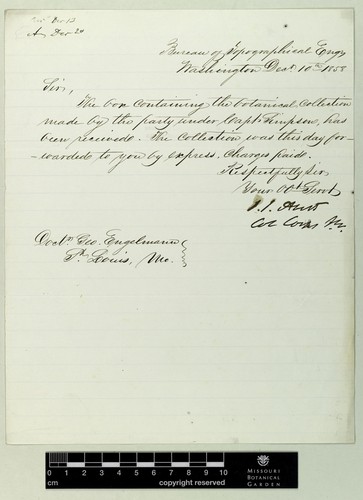 Rec'd Dec 13
A Dec 24
Bureau of Topographical Engs
Washington Decr. 10th 1858
Sir,
The box containing the botanical Collection
made by the party under Capt. Simpson, has
been received. The Collection was this day for-
-warded to you by express. Charges paid.
Respectfully Sir
Your Obt Servt
J. J. Abert
Col Corps T. E.
Doctr. Geo. Engelmann
St. Louis, Mo.
0 1 2 3 4 5 6 7 8 9 10
cm
copyright reserved
MISSOURI
BOTANICAL
GARDEN